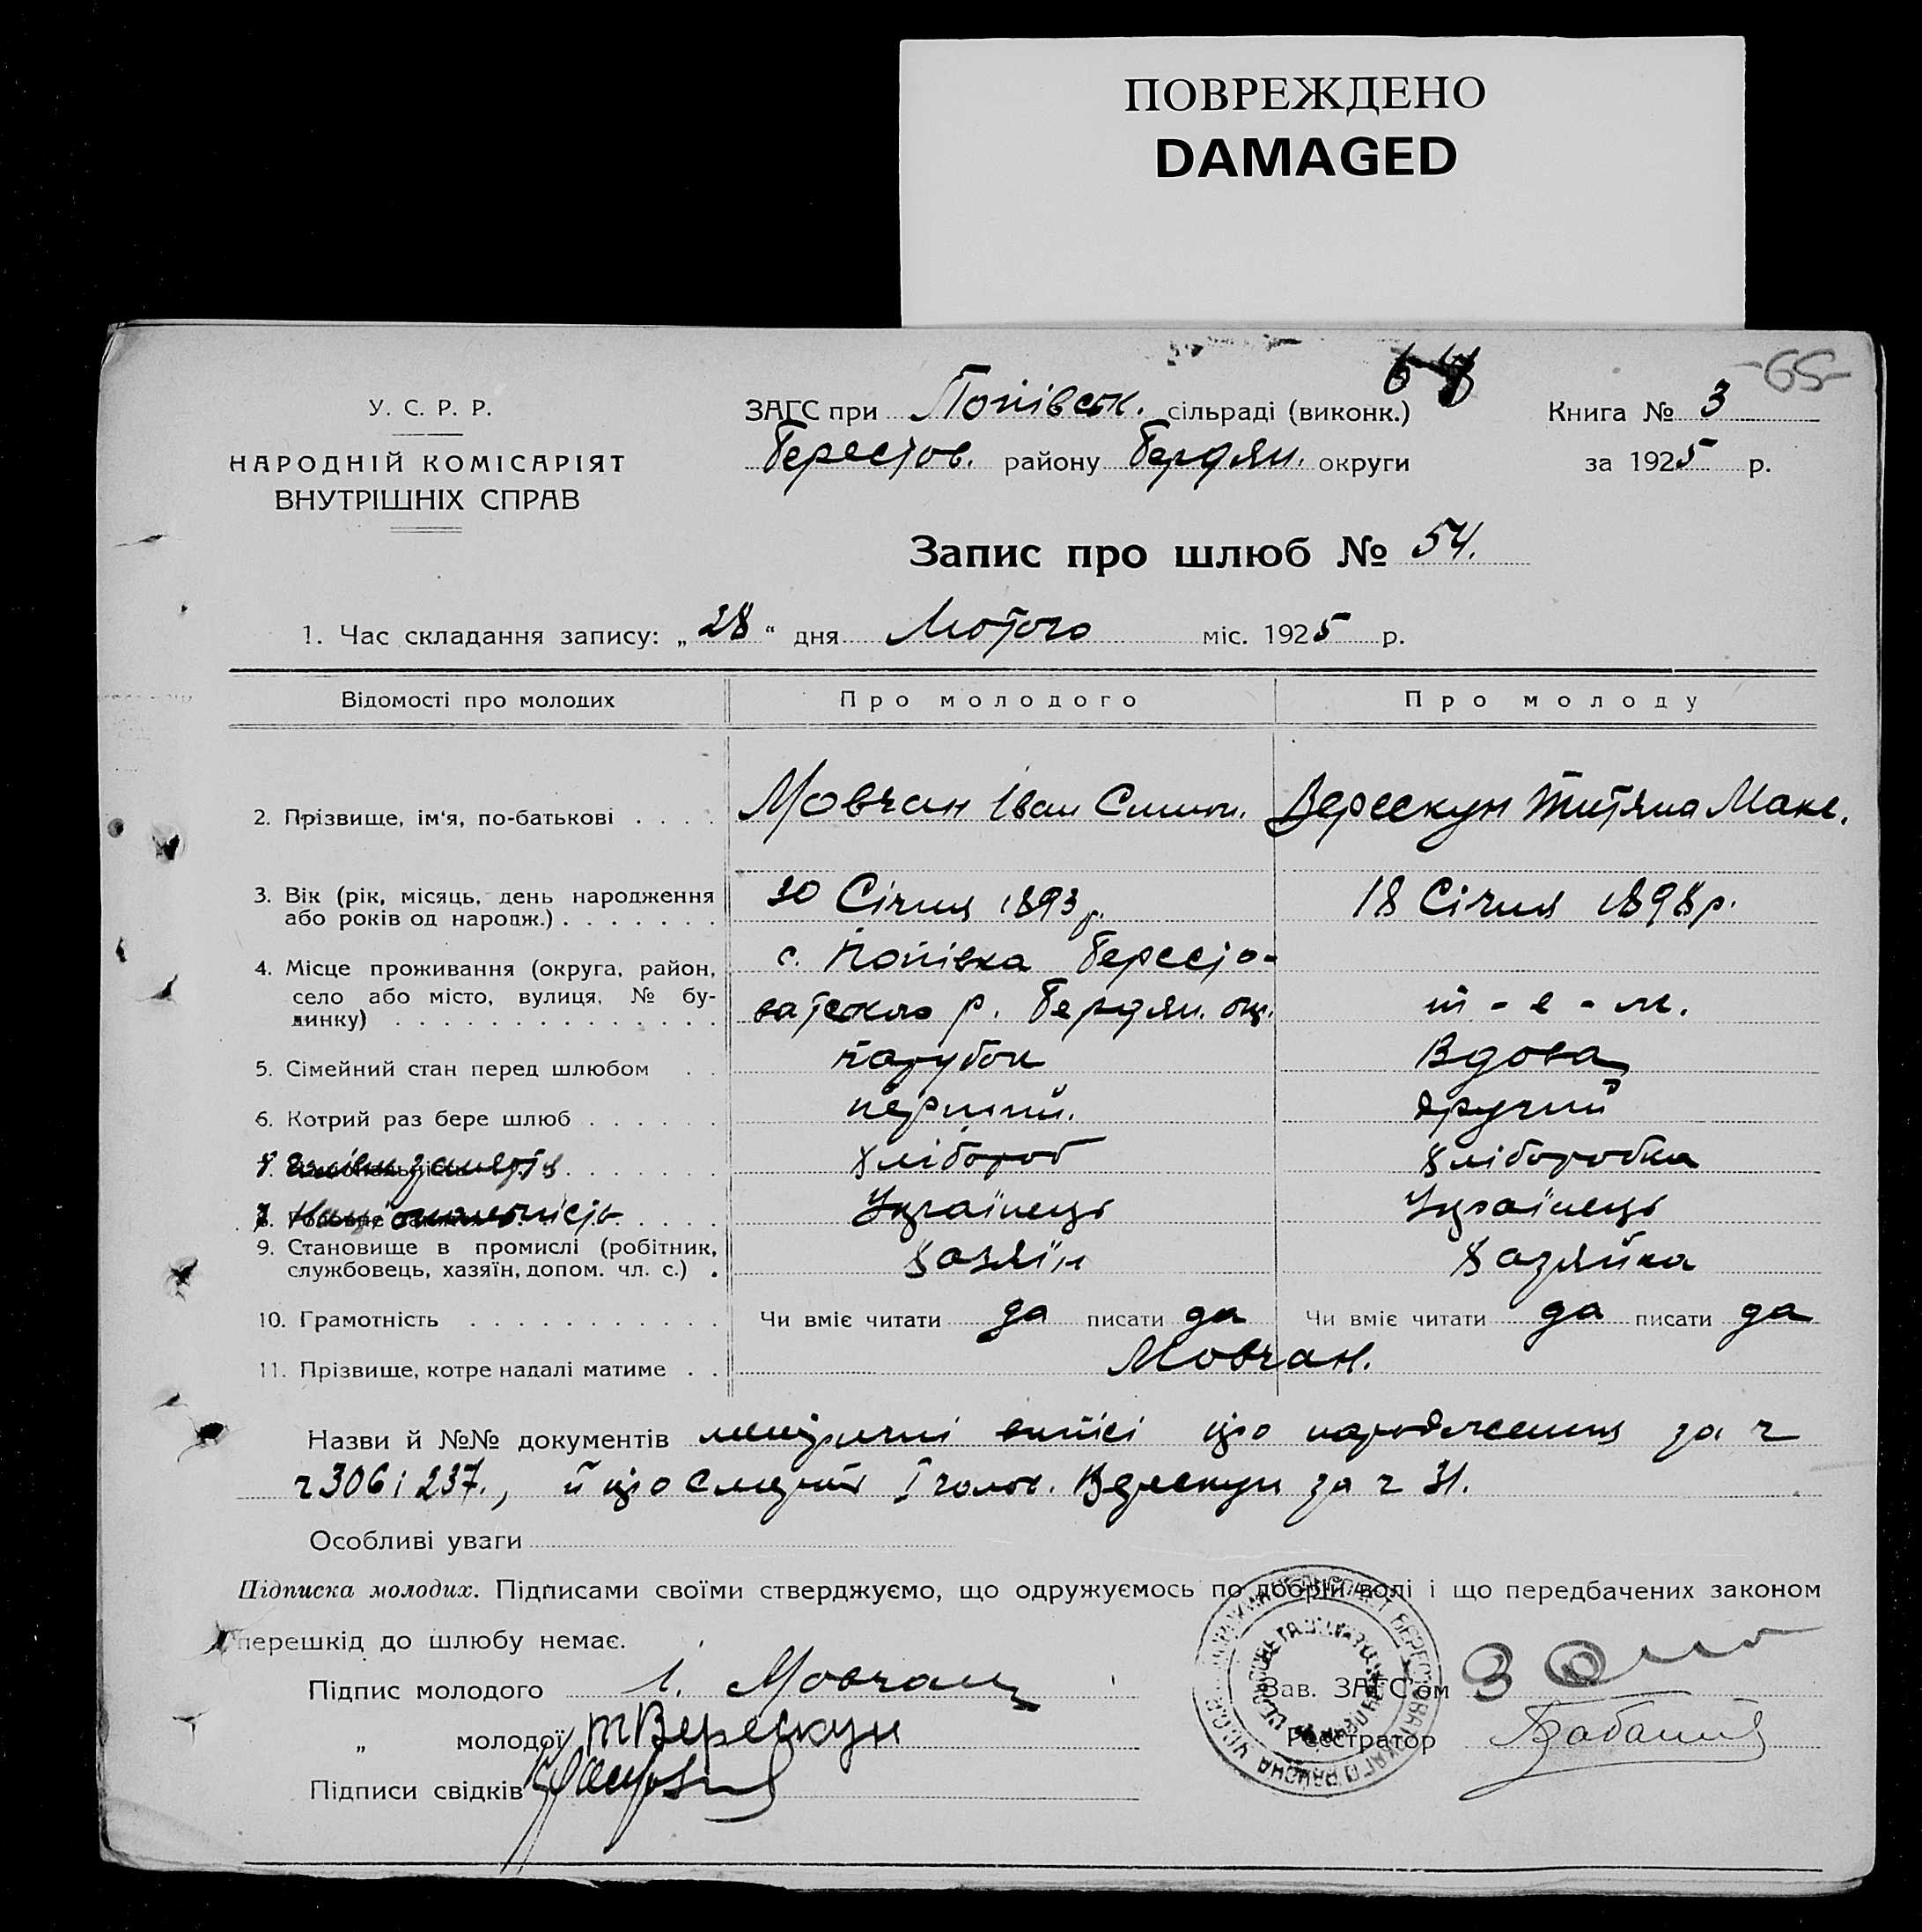 ПОВРЕЖДЕНО
DAMAGED
-65-
У. С. Р. Р.
НАРОДНІЙ КОМІСАРІЯТ
ВНУТРІШНІХ СПРАВ
ЗАГС при Попівськ. сільраді (виконк.)
Берестов. району Бердян. округи
Книга № 3
за 1925 р.
Запис про шлюб № 54.
1. Час складання запису: „ 28 “ дня Лютого міс. 1925 р.
Відомості про молодих Про молодого Про молоду
2. Прізвище, ім'я, по-батькові . . . . Мовчан Іван Симон. Верескун Титяна Макс.
3. Вік (рік, місяць, день народження
або років од народж.) . . . . . . . 30 Січня 1893 р. 18 Січня 1898 р.
4. Місце проживання (округа, район, с. Попівка Бересто-
село або місто, вулиця, № бу- ватського р. Бердян. ок. т - е - ж.
динку) . . . . . . . . . . . . . .
5. Сімейний стан перед шлюбом . . парубок Вдова
6. Котрий раз бере шлюб . . . . . . перший. другий
заняття . . . . . . . хлібороб хліборобка
Національність . . . . Українець Українець
9. Становище в промислі (робітник,
службовець, хазяїн, допом. чл. с.) . хазяїн хазяйка
10. Грамотність . . . . . . . . . . . Чи вміє читати да писати да Чи вміє читати да писати да
11. Прізвище, котре надалі матиме . . Мовчан.
Назви й №№ документів метричні виписі про народження за ч
ч 306 і 237., й про смерть І чолов. Верескун за ч 31.
Особливі уваги
Підписка молодих. Підписами своїми стверджуємо, що одружуємось по добрій волі і що передбачених законом
перешкід до шлюбу немає.
Підпис молодого І. Мовчан
„ молодої Т Верескун
Підписи свідків
Зав. ЗАГС'ом
Реєстратор